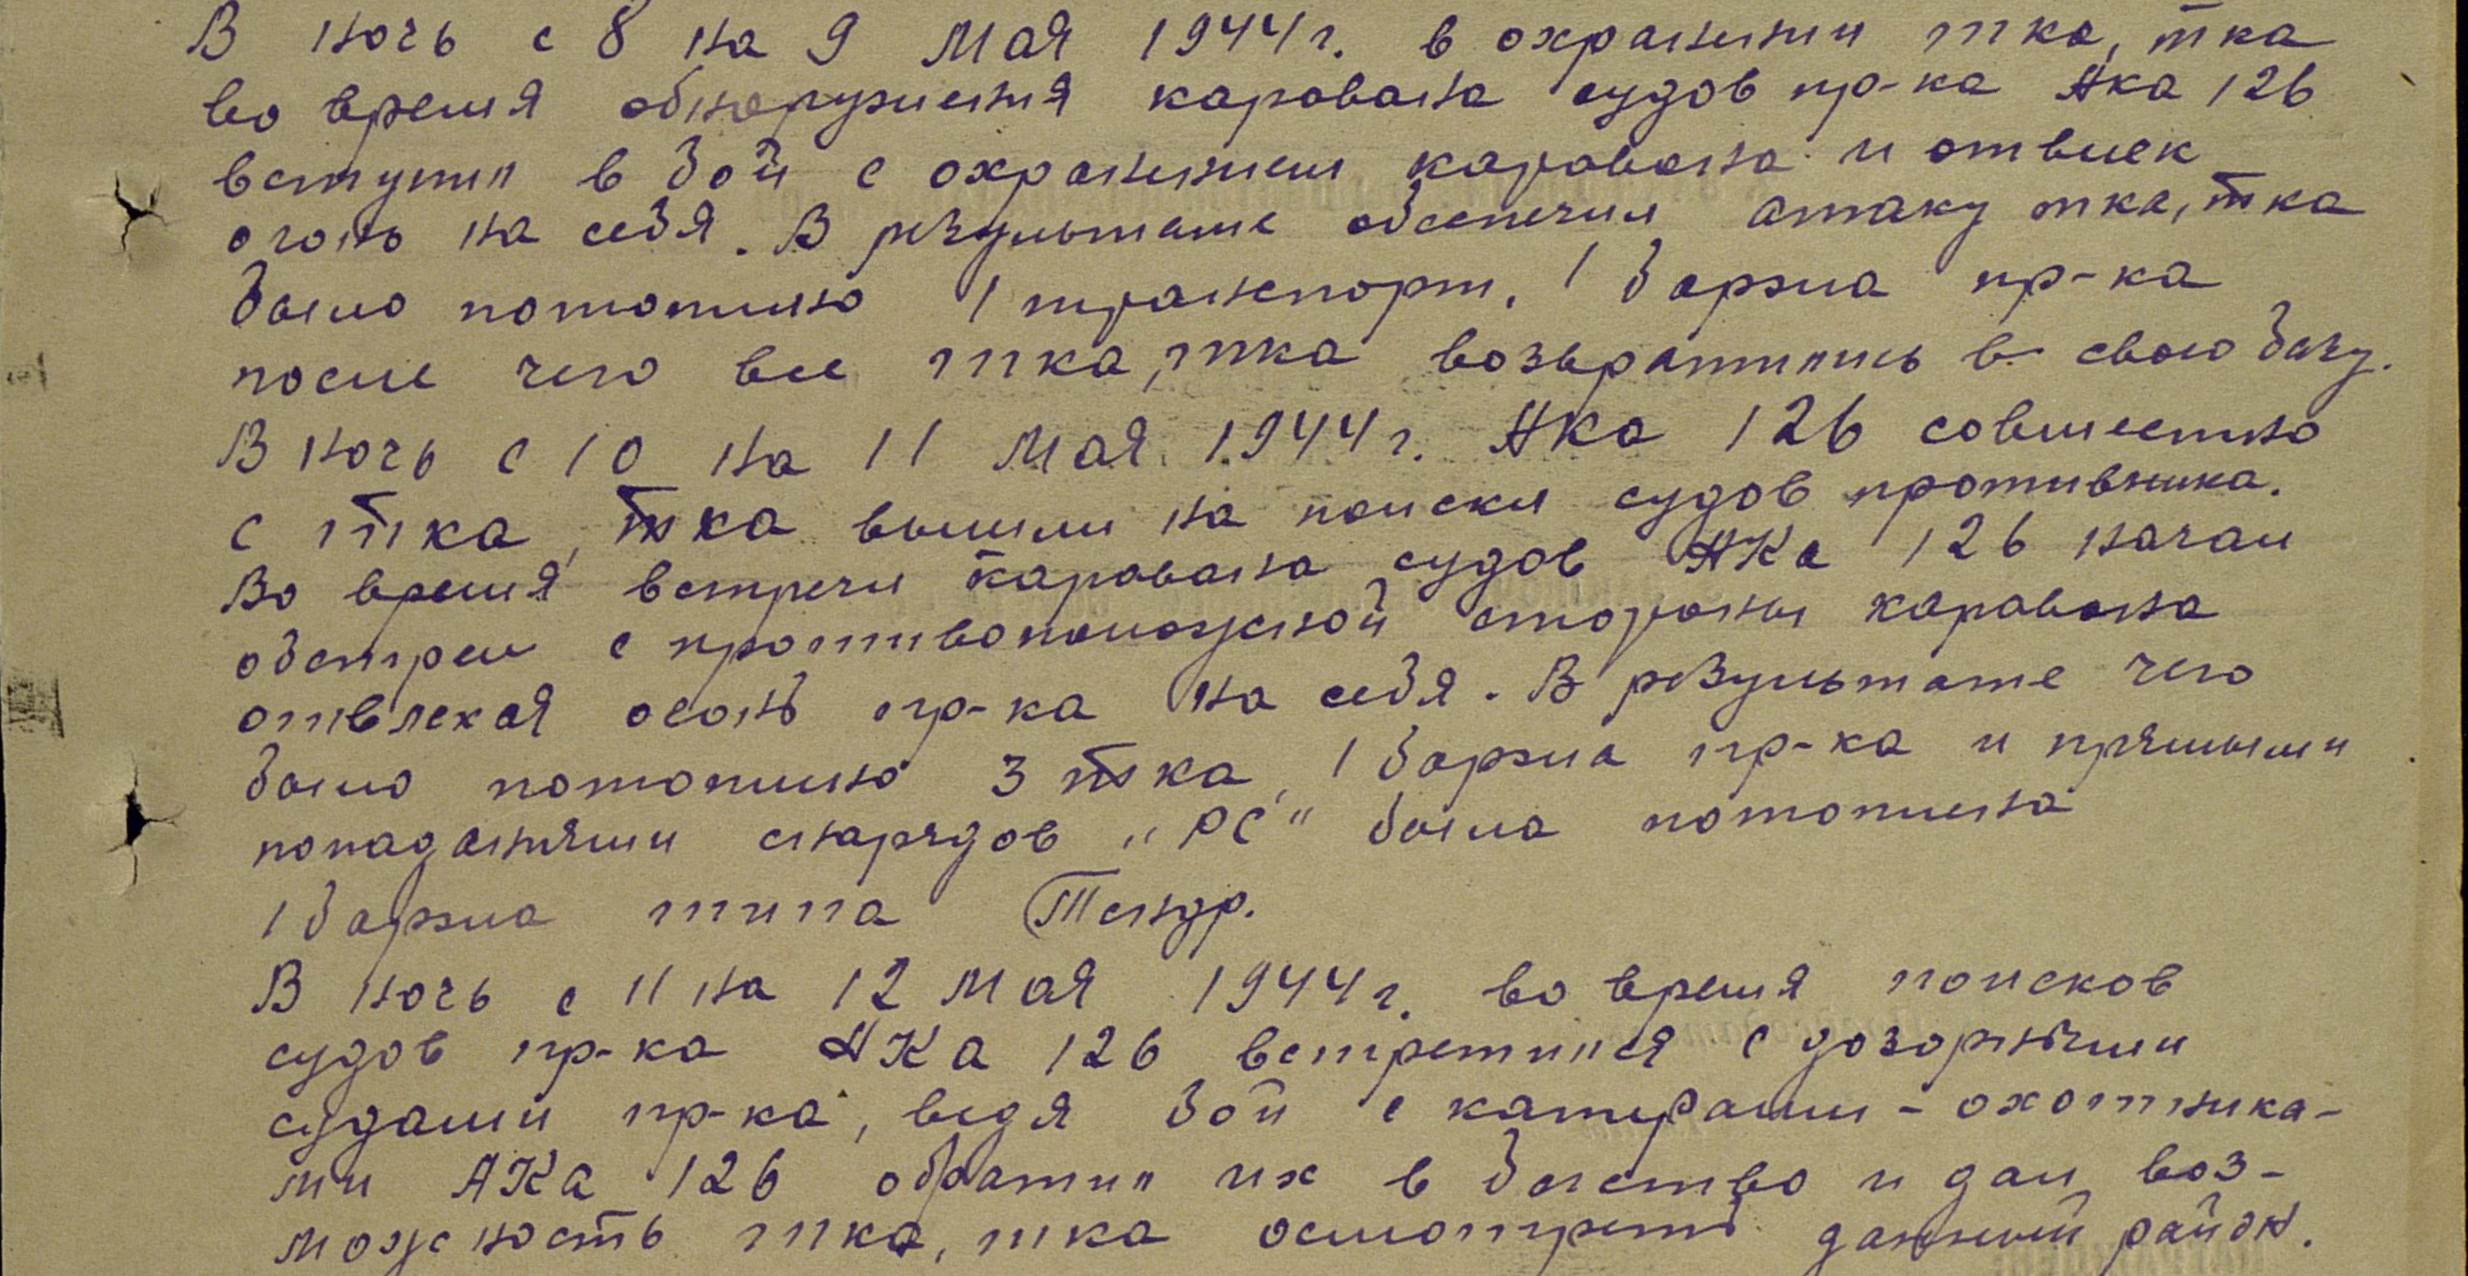 В ночь с 8 на 9 мая 1944 г. в охранении тка, тка
во время обнаружения каравана судов пр-ка Ака 126
вступил в бой с охранением каравана и отвлек
огонь на себя. В результате обспечил атаку тка, тка
было потоплено 1 транспорт, 1 баржа пр-ка
после чего все тка, тка возвратились в свою базу.
В ночь с 10 на 11 мая 1944 г. Ака 126 совместно
с тка, тка вышли на поиски судов противника.
Во время встречи каравана судов АКа 126 начал
обстрел с противоположной стороны каравана
отвлекая огонь пр-ка на себя. В результате чего
было потоплено 3 тка, 1 баржа пр-ка и прямыми
попаданиями снарядов „РС" была потоплена
1 баржа типа Тендр.
В ночь с 11 на 12 мая 1944 г. во время поисков
судов пр-ка АКа 126 встретился с дозорными
судами пр-ка, ведя бой с катерами - охотника-
ми АКа 126 обратил их в бегство и дал воз-
можность тка, тка осмотреть данный район.